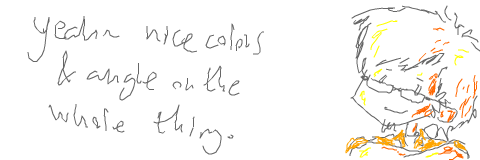 yeahh nice colors
& angle on the
whole thing.